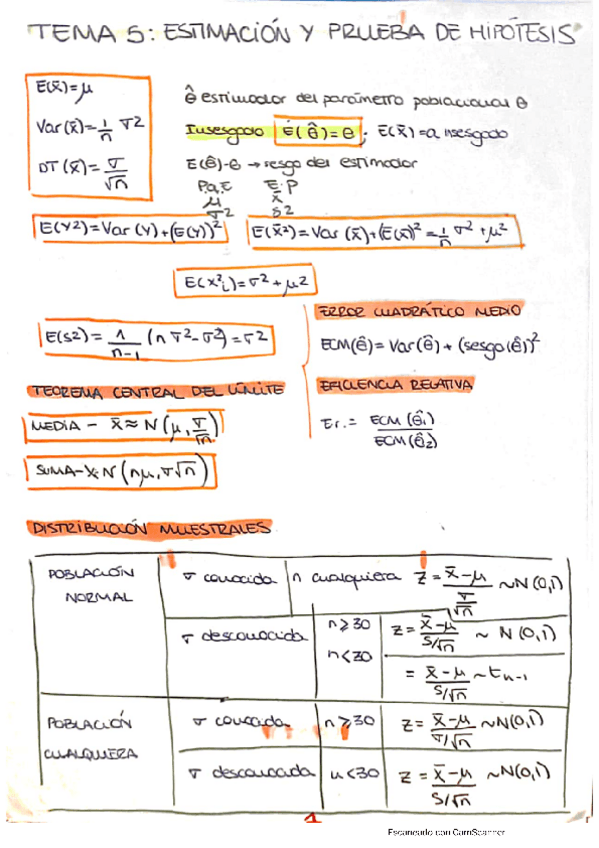 TEMA 5: ESTIMACIÓN Y PRUEBA DE HIPÓTESIS
E(x̄)=μ
Var(x̄)=1/n σ2
DT(x̄)=σ/√n
θ̂ estimador del parámetro poblacional θ
Insesgado E(θ̂)=θ ; E(x̄)=a insesgado
E(θ̂)-θ → sesgo del estimador
μ x̄
σ2 s2
E(Y2)=Var(Y)+(E(Y))²
E(x̄2)=Var(x̄)+(E(x̄))²=1/n σ2+μ2
E(x²i)=σ2+μ2
E(s2)=1/(n-1) (nσ2-σ2)=σ2
ERROR CUADRÁTICO MEDIO
ECM(θ̂)=Var(θ̂)+(sesgo(θ̂))²
TEOREMA CENTRAL DEL LÍMITE
MEDIA - x̄≈N(μ, σ/√n)
SUMA-X≈N(nμ, σ√n)
EFICIENCIA RELATIVA
Er.= ECM(θ̂1)/ECM(θ̂2)
DISTRIBUCIÓN MUESTRALES
POBLACIÓN NORMAL
σ conocida n cualquiera Z=(x̄-μ)/(σ/√n) ~N(0,1)
σ desconocida n≥30 Z=(x̄-μ)/(S/√n) ~ N(0,1)
n<30 =(x̄-μ)/(S/√n) ~ tn-1
POBLACIÓN CUALQUIERA
σ conocida n≥30 Z=(x̄-μ)/(σ/√n) ~N(0,1)
σ desconocida n<30 Z=(x̄-μ)/(S/√n) ~N(0,1)
1
Escaneado con CamScanner